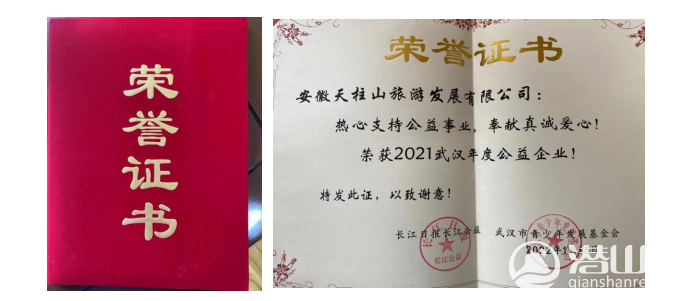 荣誉证书
荣誉证书
安徽天柱山旅游发展有限公司：
热心支持公益事业，奉献真诚爱心！
荣获2021武汉年度公益企业！
特发此证，以致谢意！
长江日报长江公益 武汉市青少年发展基金会
长江公益
潜山
qianshanre